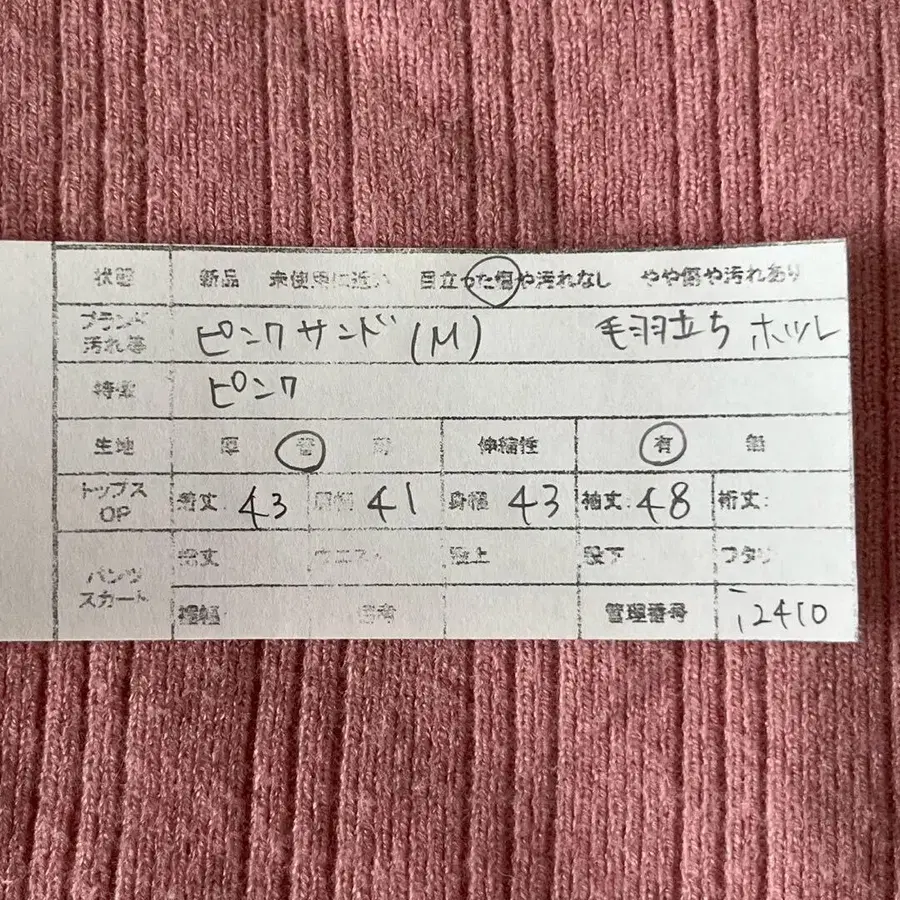 状態 新品 未使用に近い 目立った傷や汚れなし やや傷や汚れあり
ブランド 汚れ等 ピンクサンド(M) 毛羽立ち ホツレ
特徴 ピンク
生地 厚 普 薄 伸縮性 有 無
トップス OP 着丈 43 肩幅 41 身幅 43 袖丈: 48 裄丈:
パンツ スカート 総丈 ウエスト 股上 股下 ワタリ
裾幅 備考 管理番号 i2410